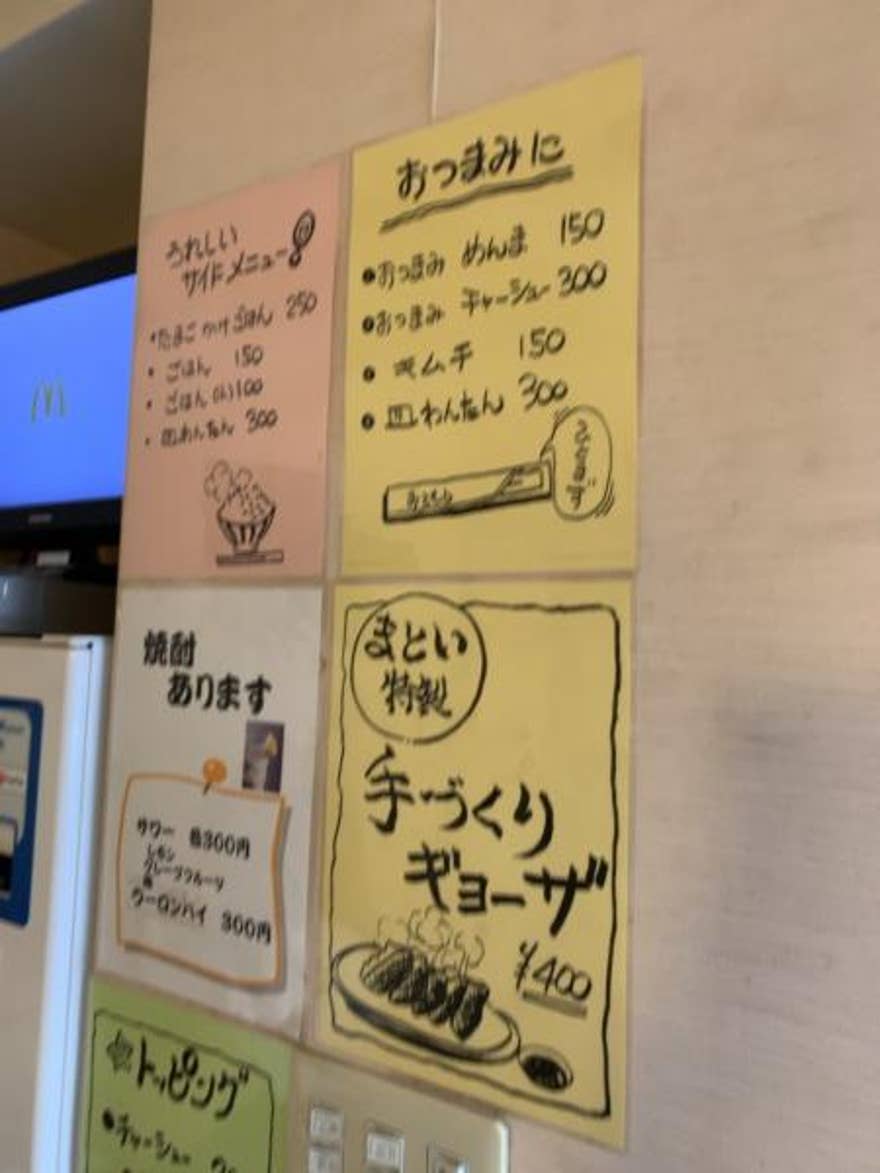 うれしい
サイドメニュー
・たまごかけごはん 250
・ごはん 150
・ごはん(小)100
・皿わんたん 300
おつまみに
・おつまみ めんま 150
・おつまみ チャーシュー 300
・キムチ 150
・皿わんたん 300
焼酎
あります
サワー 各300円
レモン
グレープフルーツ
梅
ウーロンハイ 300円
まとい
特製
手づくり
ギョーザ
¥400
☆トッピング
・チャーシュー